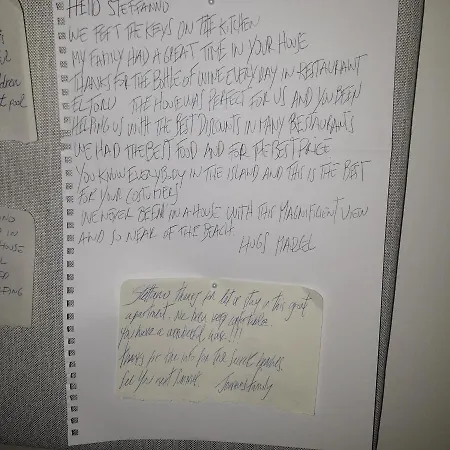 HELLO STEFFANNO
WE LEFT THE KEYS ON THE KITCHEN
MY FAMILY HAD A GREAT TIME IN YOUR HOUSE
THANKS FOR THE BOTTLE OF WINE EVERY DAY IN RESTAURANT
EL TORO THE HOUSE WAS PERFECT FOR US AND YOU BEEN
HELPING US WITH THE BEST DISCOUNTS IN MANY RESTAURANTS
WE HAD THE BEST FOOD AND FOR THE BEST PRICE
YOU KNOW EVERYBODY IN THE ISLAND AND THIS IS THE BEST
FOR YOUR COSTUMERS
WE NEVER BEEN IN A HOUSE WITH THIS MAGNIFICIENT VIEW
AND SO NEAR OF THE BEACH
HUGS
Steffanno thanks for let us stay in this great
apartment. We been very comfortable.
You have a wonderful house!!!
Thanks for the info for the secret beaches.
See you next summer. family
pool
HOUSE